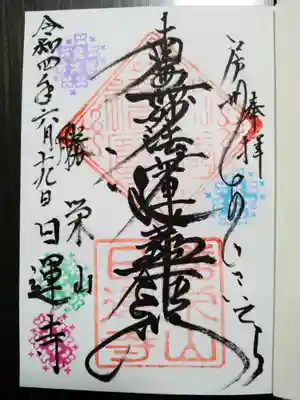 奉拝
房州あじさいてら
南無妙法蓮華経
勝栄山
日運寺
令和四年六月十九日